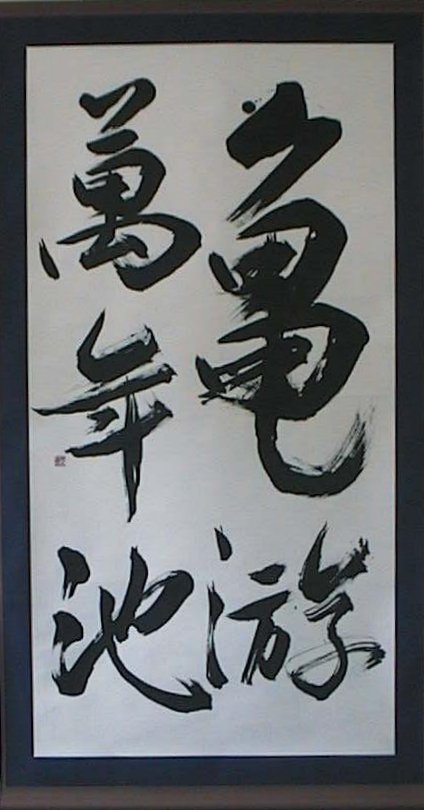 亀游
萬年池